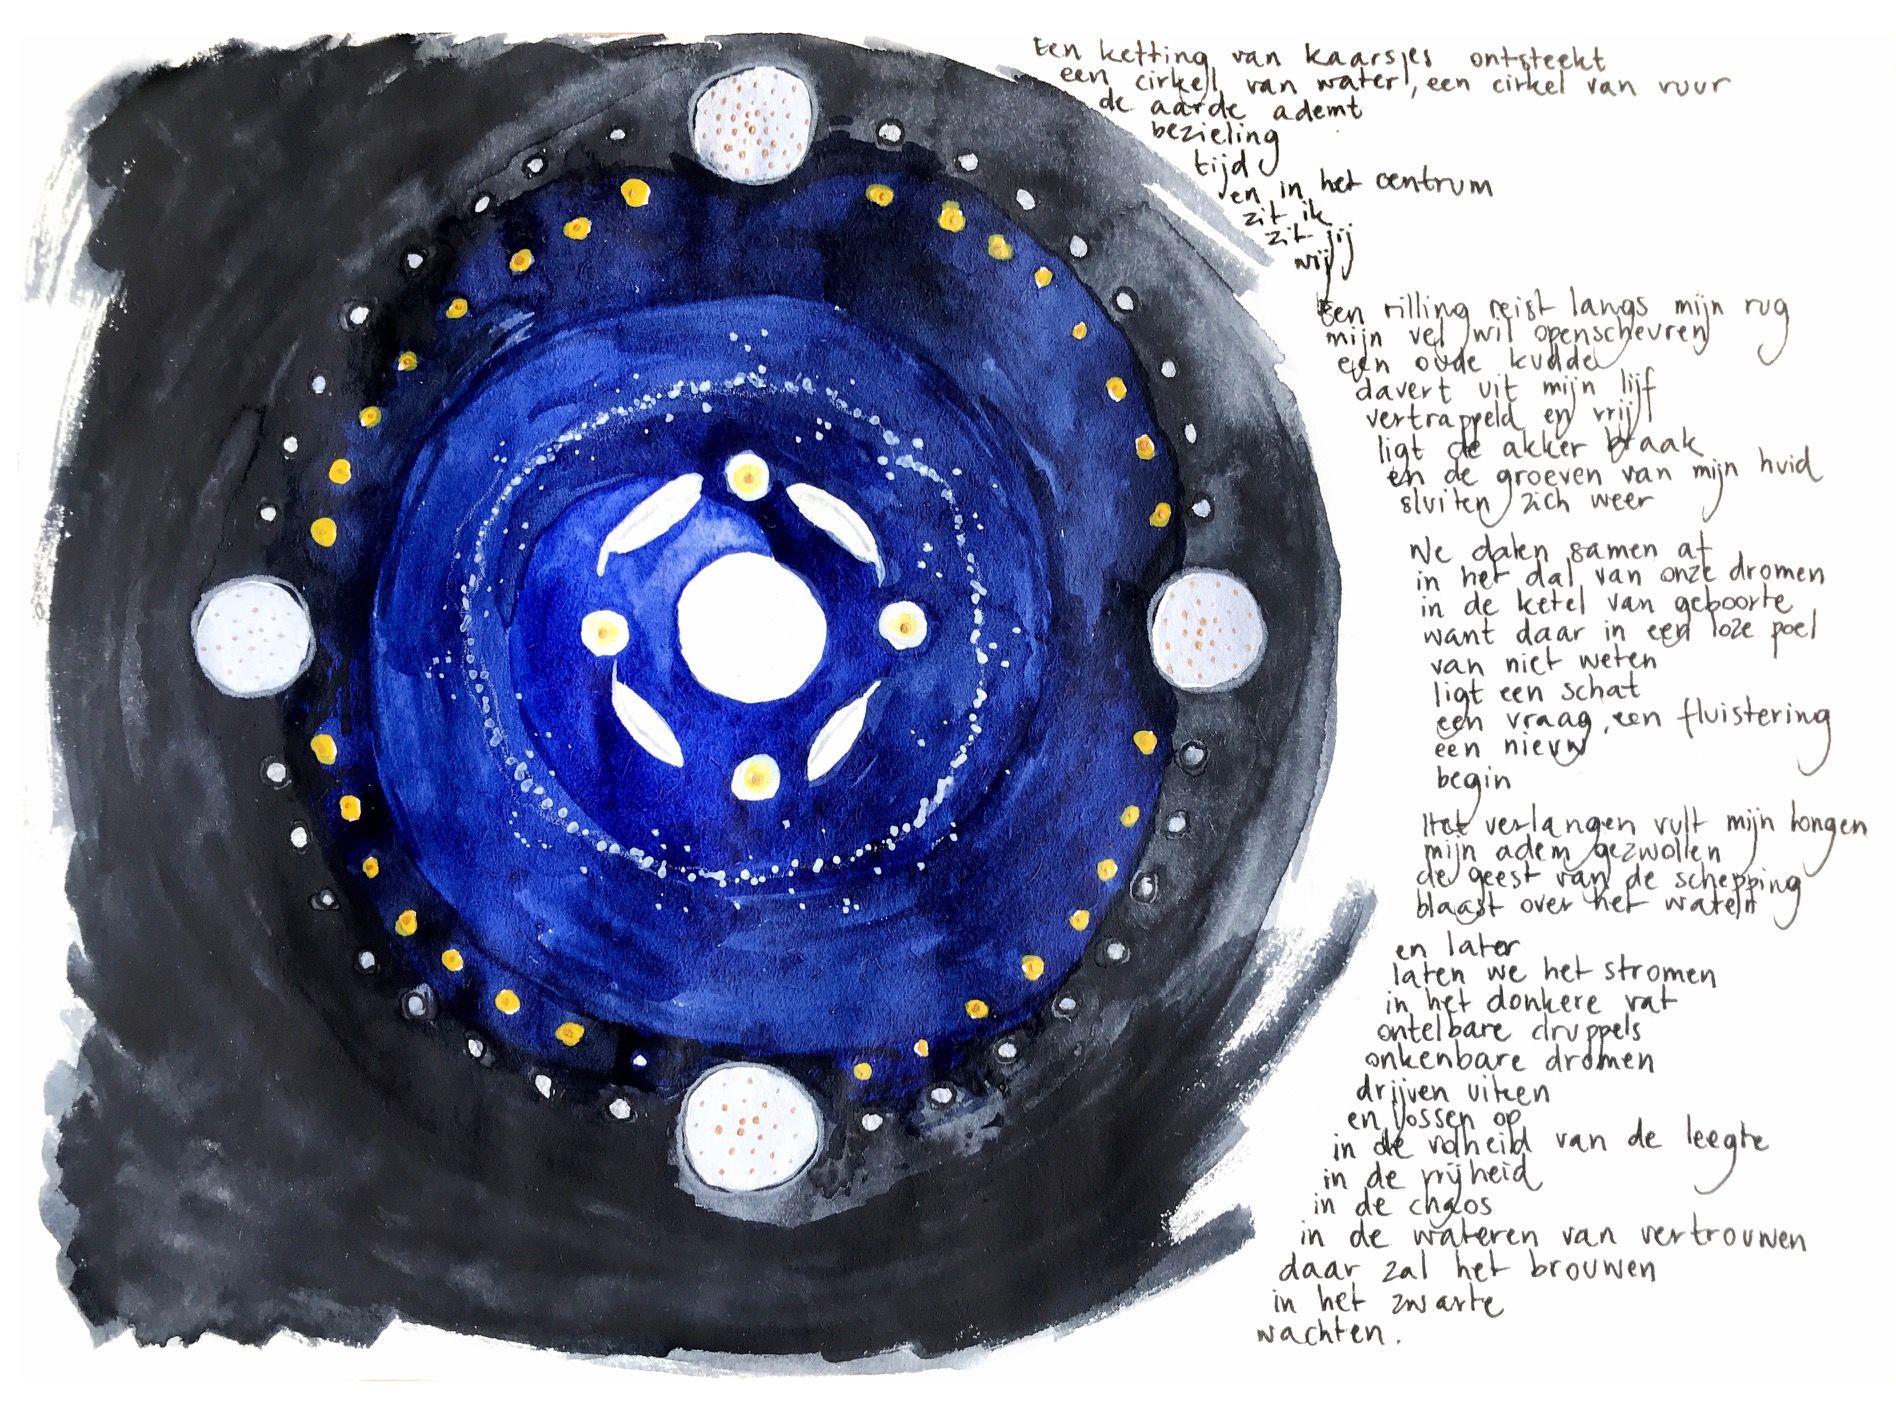 Een ketting van kaarsjes ontsteekt
een cirkel van water, een cirkel van vuur
de aarde ademt
bezieling
tijd
en in het centrum
zit ik
zit jij
wij
Een rilling reist langs mijn rug
mijn vel wil openscheuren
een oude kudde
davert uit mijn lijf
vertrappeld en vrij
ligt de akker braak
en de groeven van mijn huid
sluiten zich weer
We dalen samen af
in het dal van onze dromen
in de ketel van geboorte
want daar in een loze poel
van niet weten
ligt een schat
een vraag, een fluistering
een nieuw
begin
Het verlangen vult mijn longen
mijn adem gezwollen
de geest van de schepping
blaast over het water
en later
laten we het stromen
in het donkere vat
ontelbare druppels
onkenbare dromen
drijven uiteen
en lossen op
in de volheid van de leegte
in de vrijheid
in de chaos
in de wateren van vertrouwen
daar zal het brouwen
in het zwarte
wachten.